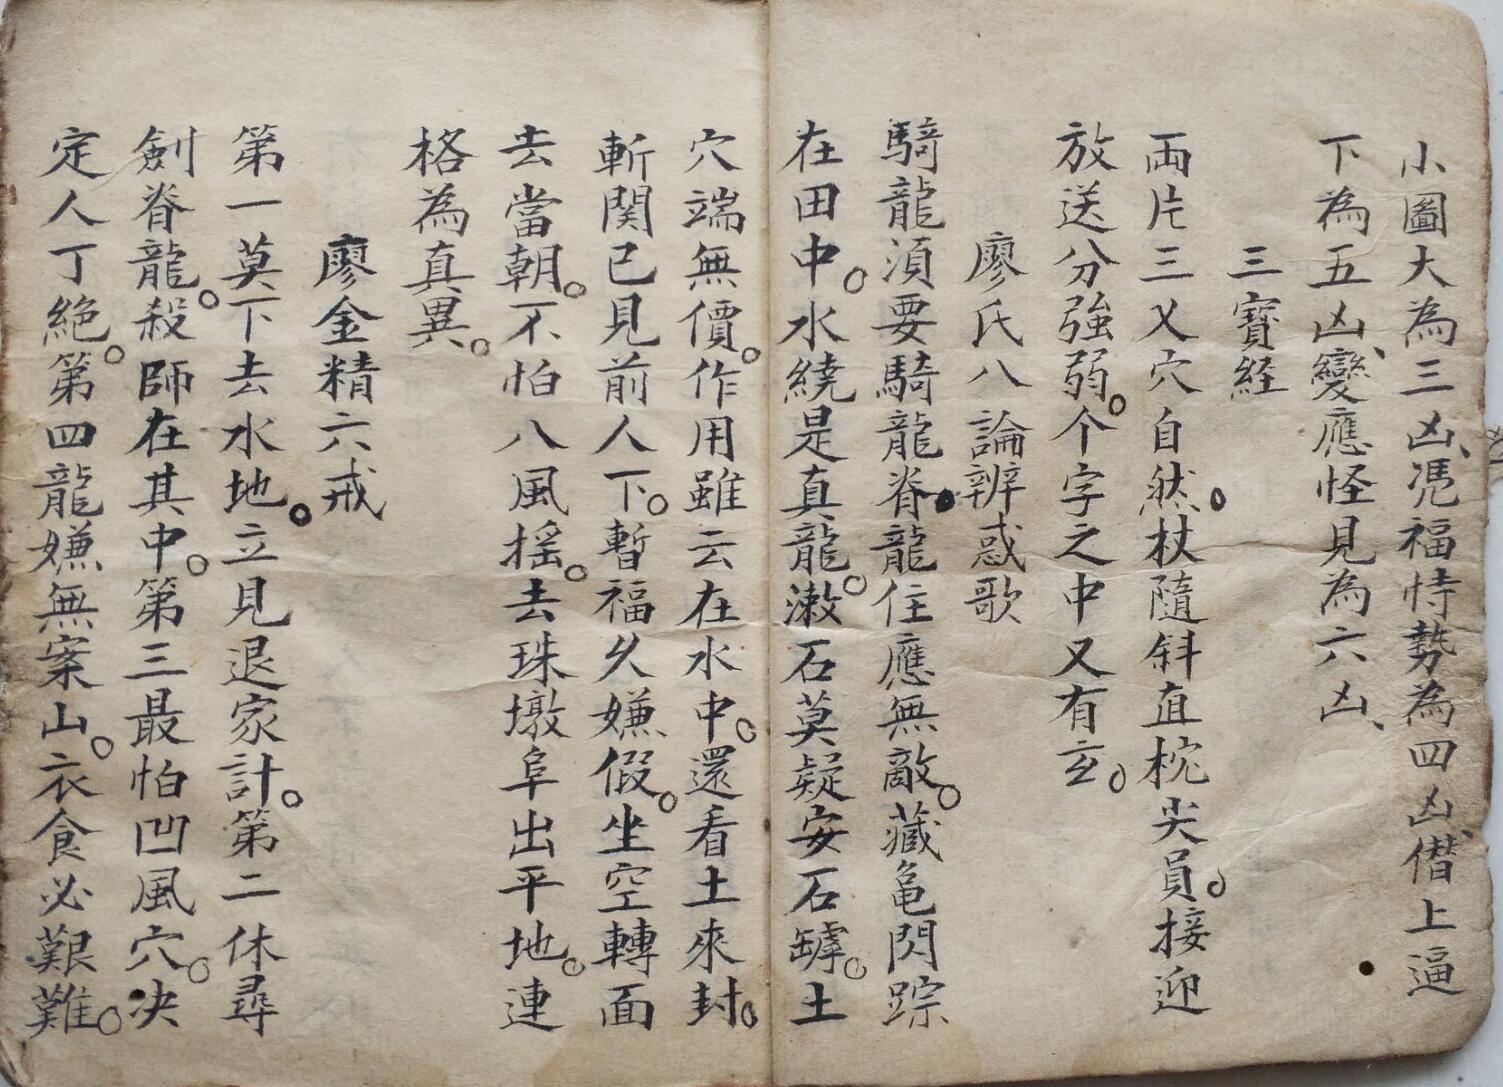 小圖大為三凶、憑福恃勢為四凶、僭上逼
下為五凶、變應怪見為六凶、
三寶経
両片三乂穴自然。杖隨斜直枕尖員。接迎
放送分強弱。个字之中又有玄。
廖氏八論辨惑歌
騎龍須要騎龍脊。龍住應無敵。藏龜閃踪
在田中。水繞是真龍。漱石莫疑安石罅。土
穴端無價。作用雖云在水中。還看土來封。
斬関已見前人下。暫福久嫌假。坐空轉面
去當朝。不怕八風摇。去珠墩阜出平地。連
格為真異。
廖金精六戒
第一莫下去水地。立見退家計。第二休尋
劍脊龍。殺師在其中。第三最怕凹風穴。决
定人丁絕。第四龍嫌無案山。衣食必艱難。